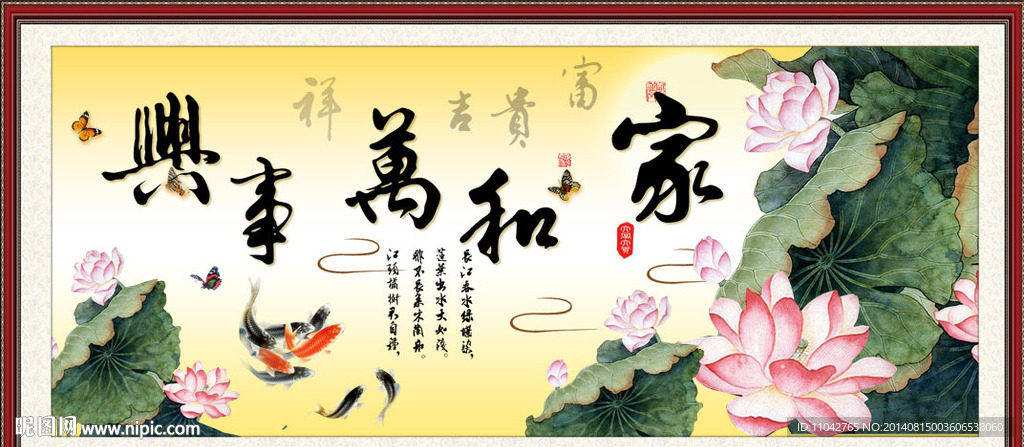 家和萬事興
富貴吉祥
長江春水綠堪染，
蓮葉出水大如
那不長系木蘭舟。
江頭橘樹君自種，
昵图网 www.nipic.com
ID:11042765 NO:20140815003606538060